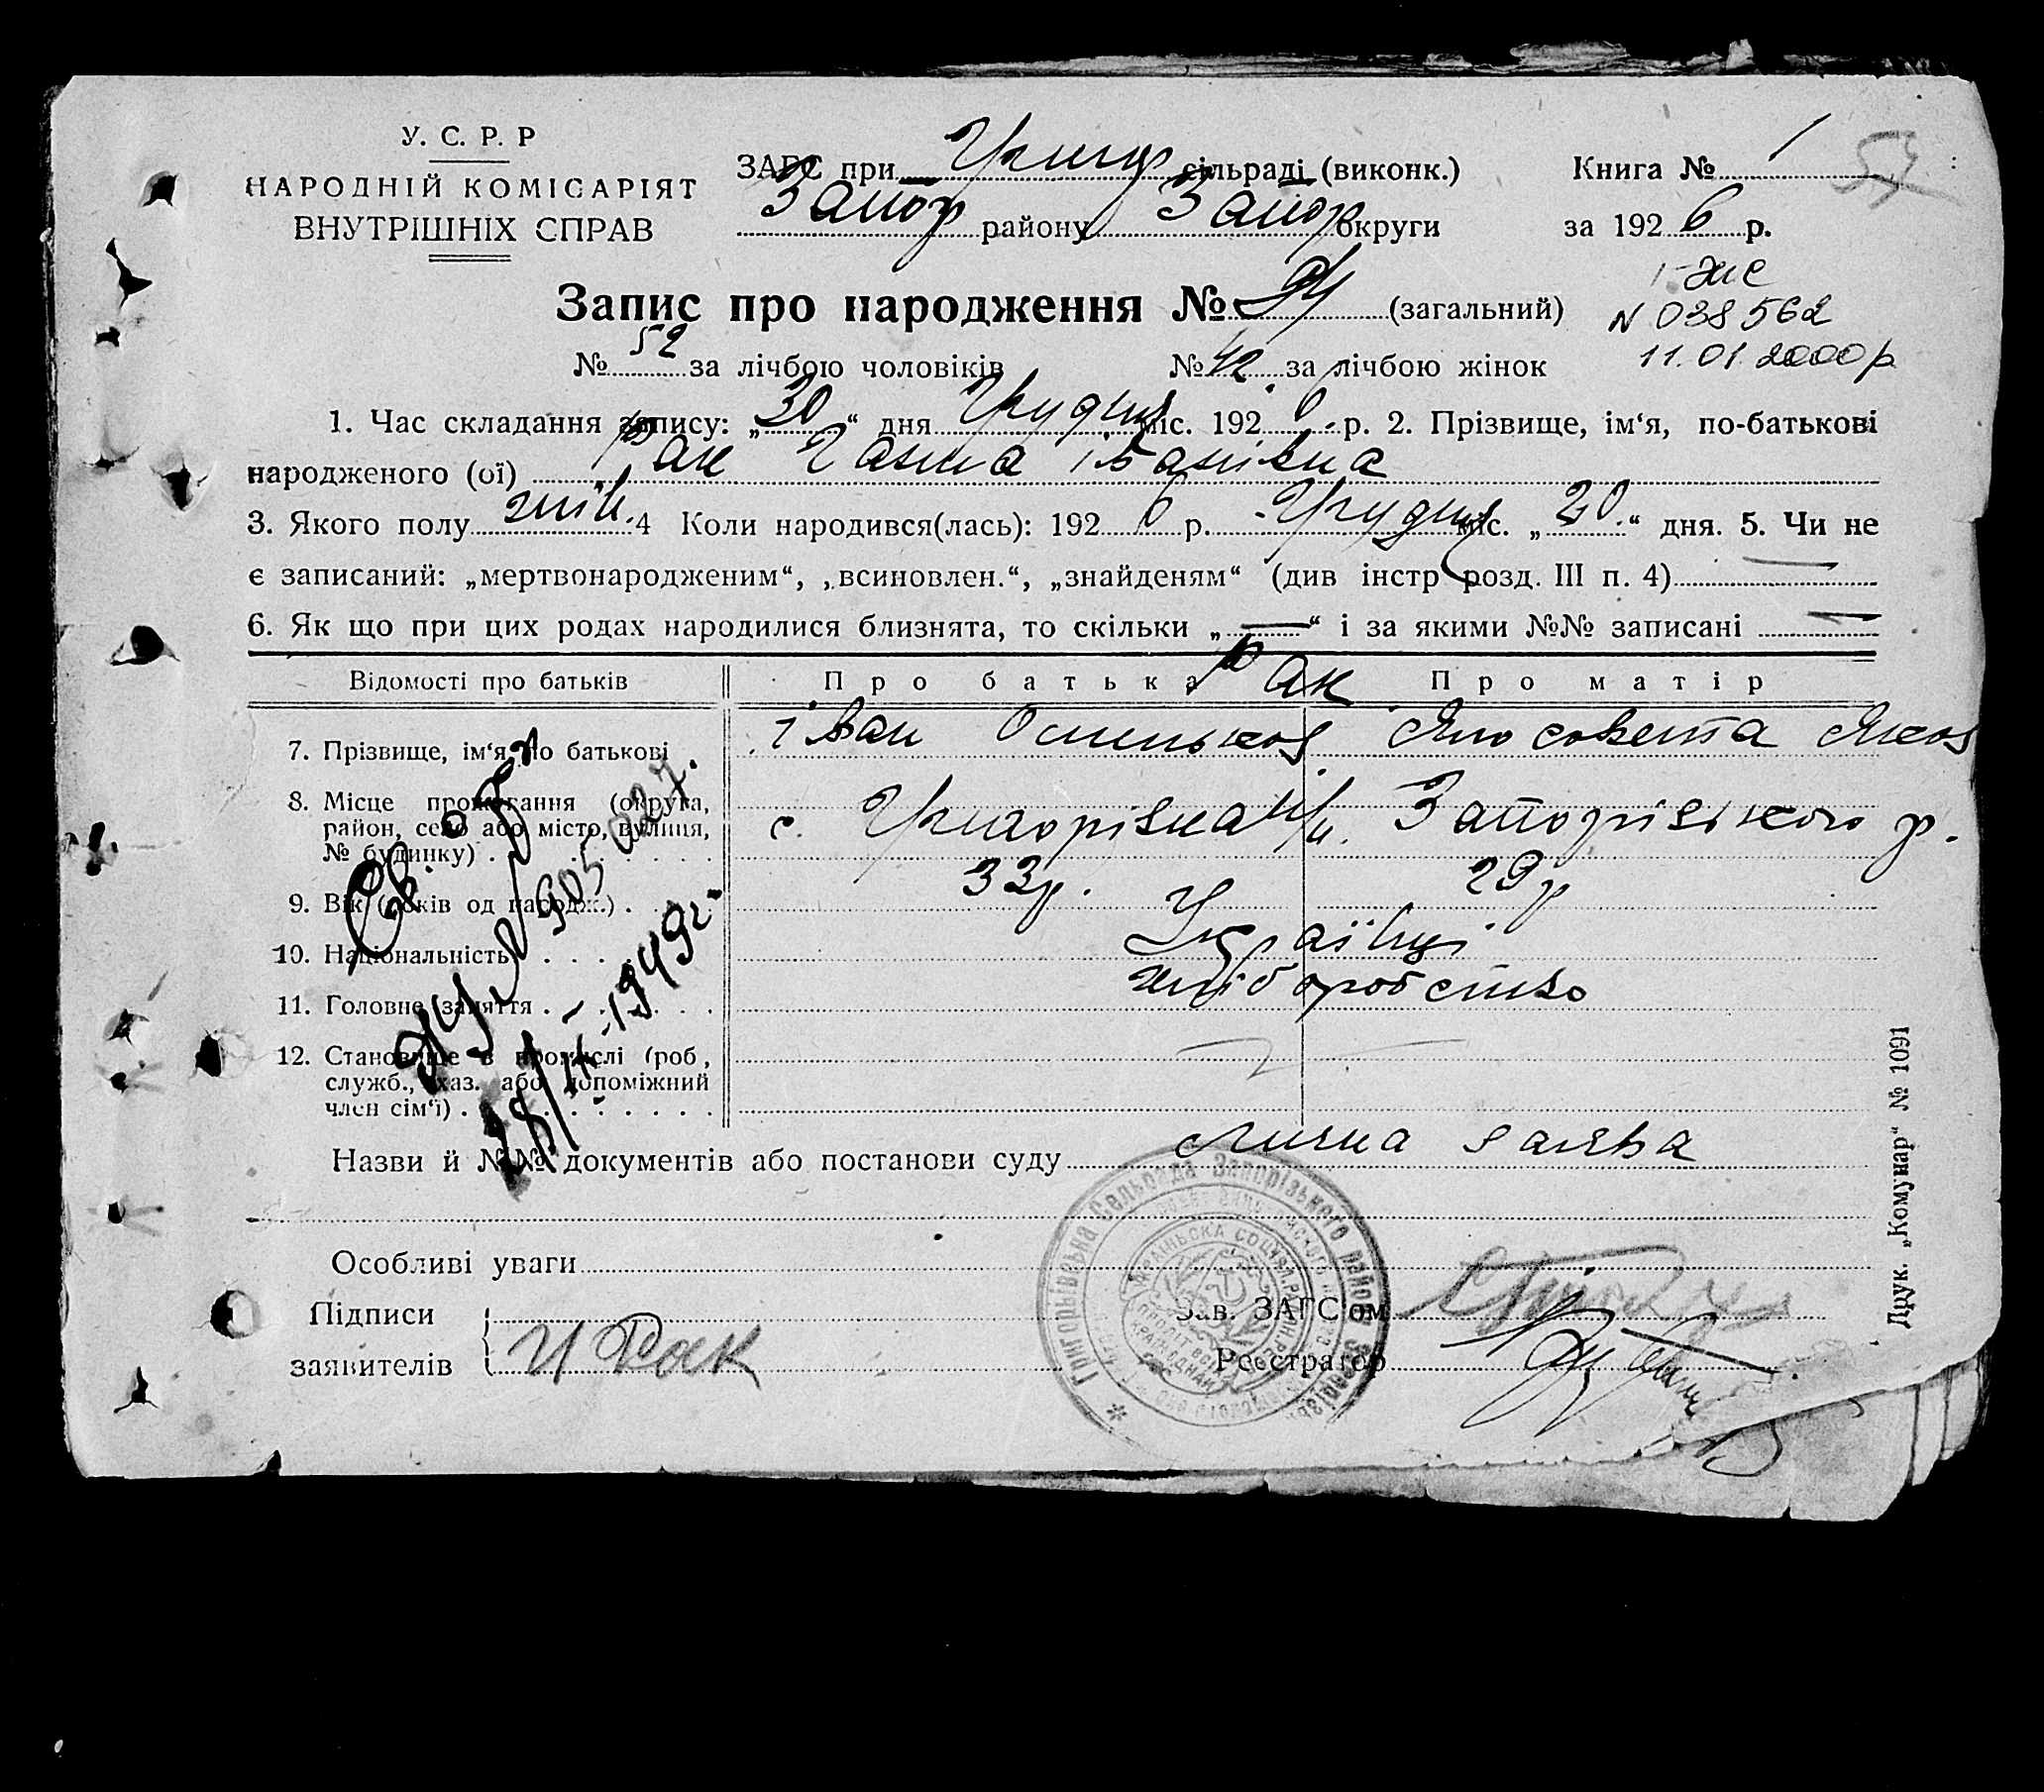 У. С. Р. Р
НАРОДНІЙ КОМІСАРІЯТ
ВНУТРІШНІХ СПРАВ
ЗАГС при Григор сільраді (виконк.) Книга № 1
57
Запор району Запор округи за 192 6 р.
Запис про народження № 94 (загальний)
N 038562
№ 52 за лічбою чоловіків № 42 за лічбою жінок
11.01.2000р
1. Час складання запису: „30“ дня Грудня міс. 192 6 р. 2. Прізвище, ім‘я, по-батькові
народженого (ої) Рак Ганна Іванівна
3. Якого полу жін. 4 Коли народився(лась): 192 6 р. Грудня міс. „20“ дня. 5. Чи не
є записаний: „мертвонародженим“, „всиновлен.“, „знайденям“ (див інстр розд. III п. 4)
6. Як що при цих родах народилися близнята, то скільки „—“ і за якими №№ записані —
Відомості про батьків Про батька Про матір
Рак
7. Прізвище, ім‘я, по батькові Іван Яков
8. Місце прожигання (округа,
район, село або місто, вулиця,
№ будинку) с. Григорівка Запорізького р.
9. Вік (років од народж.) 33р. 29р
10. Національність Українці
11. Головне заняття хліборобство
12. Становище в промислі (роб,
служб., хаз. або допоміжний
член сім‘ї)
Св. о
905027.
1949г.
Назви й №№ документів або постанови суду Лична заява
Особливі уваги
Підписи
заявителів И Рак
Зав. ЗАГС‘ом
Реєстратор
Григорьівська Сельрада Запорізького району
Друк. „Комунар“ № 1091